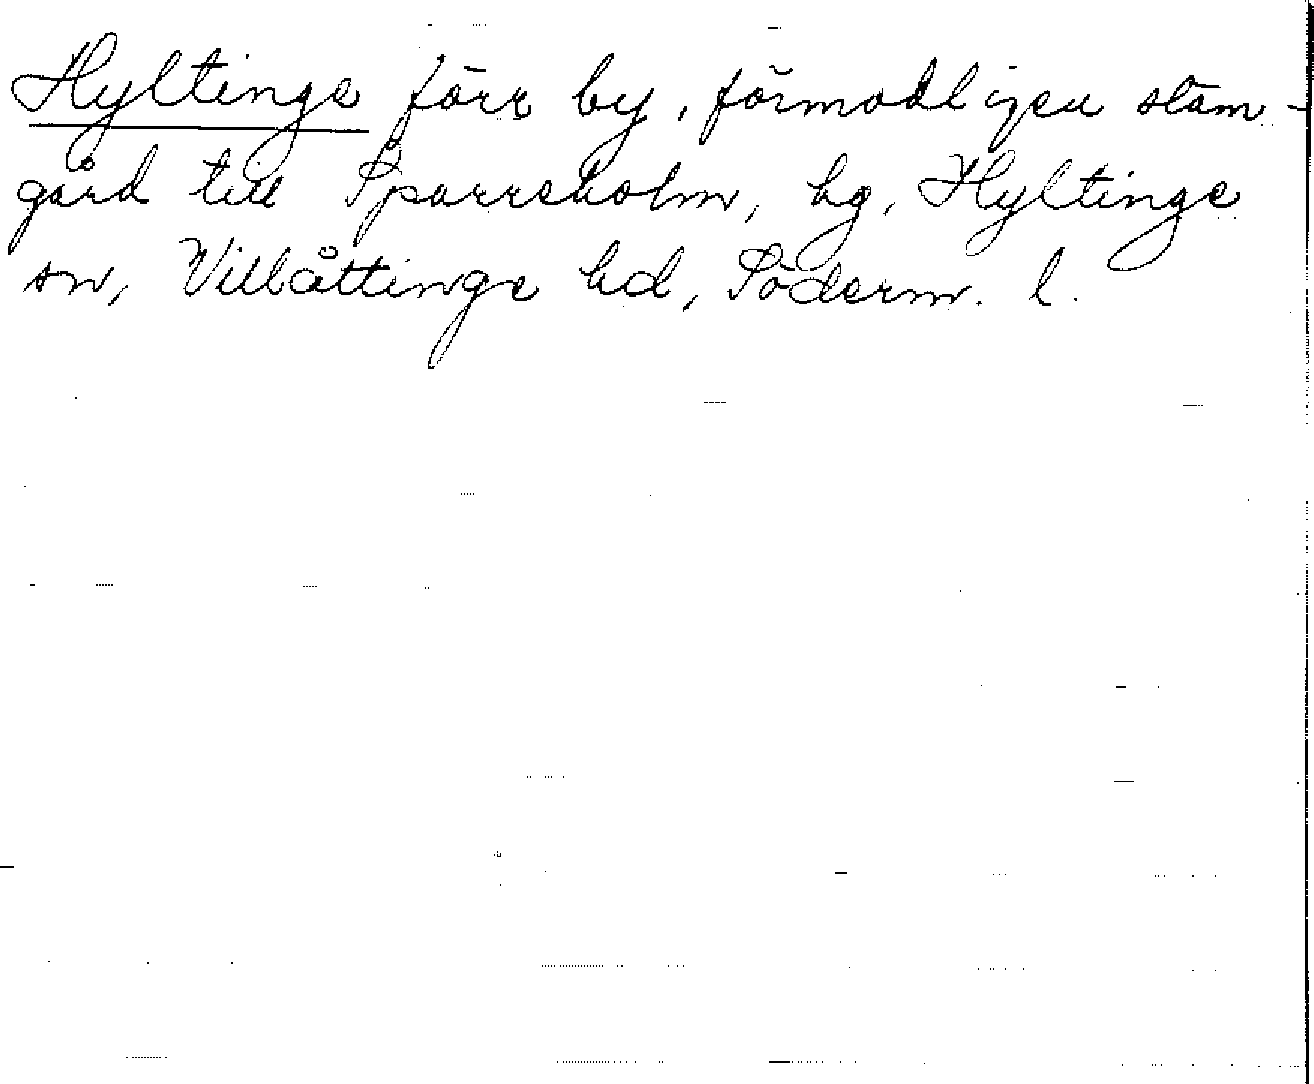 Hyltinge förr by, förmodligen stam-
gård till Sparreholm, hg, Hyltinge
sn, Villåttinge hd, Söderm. l.